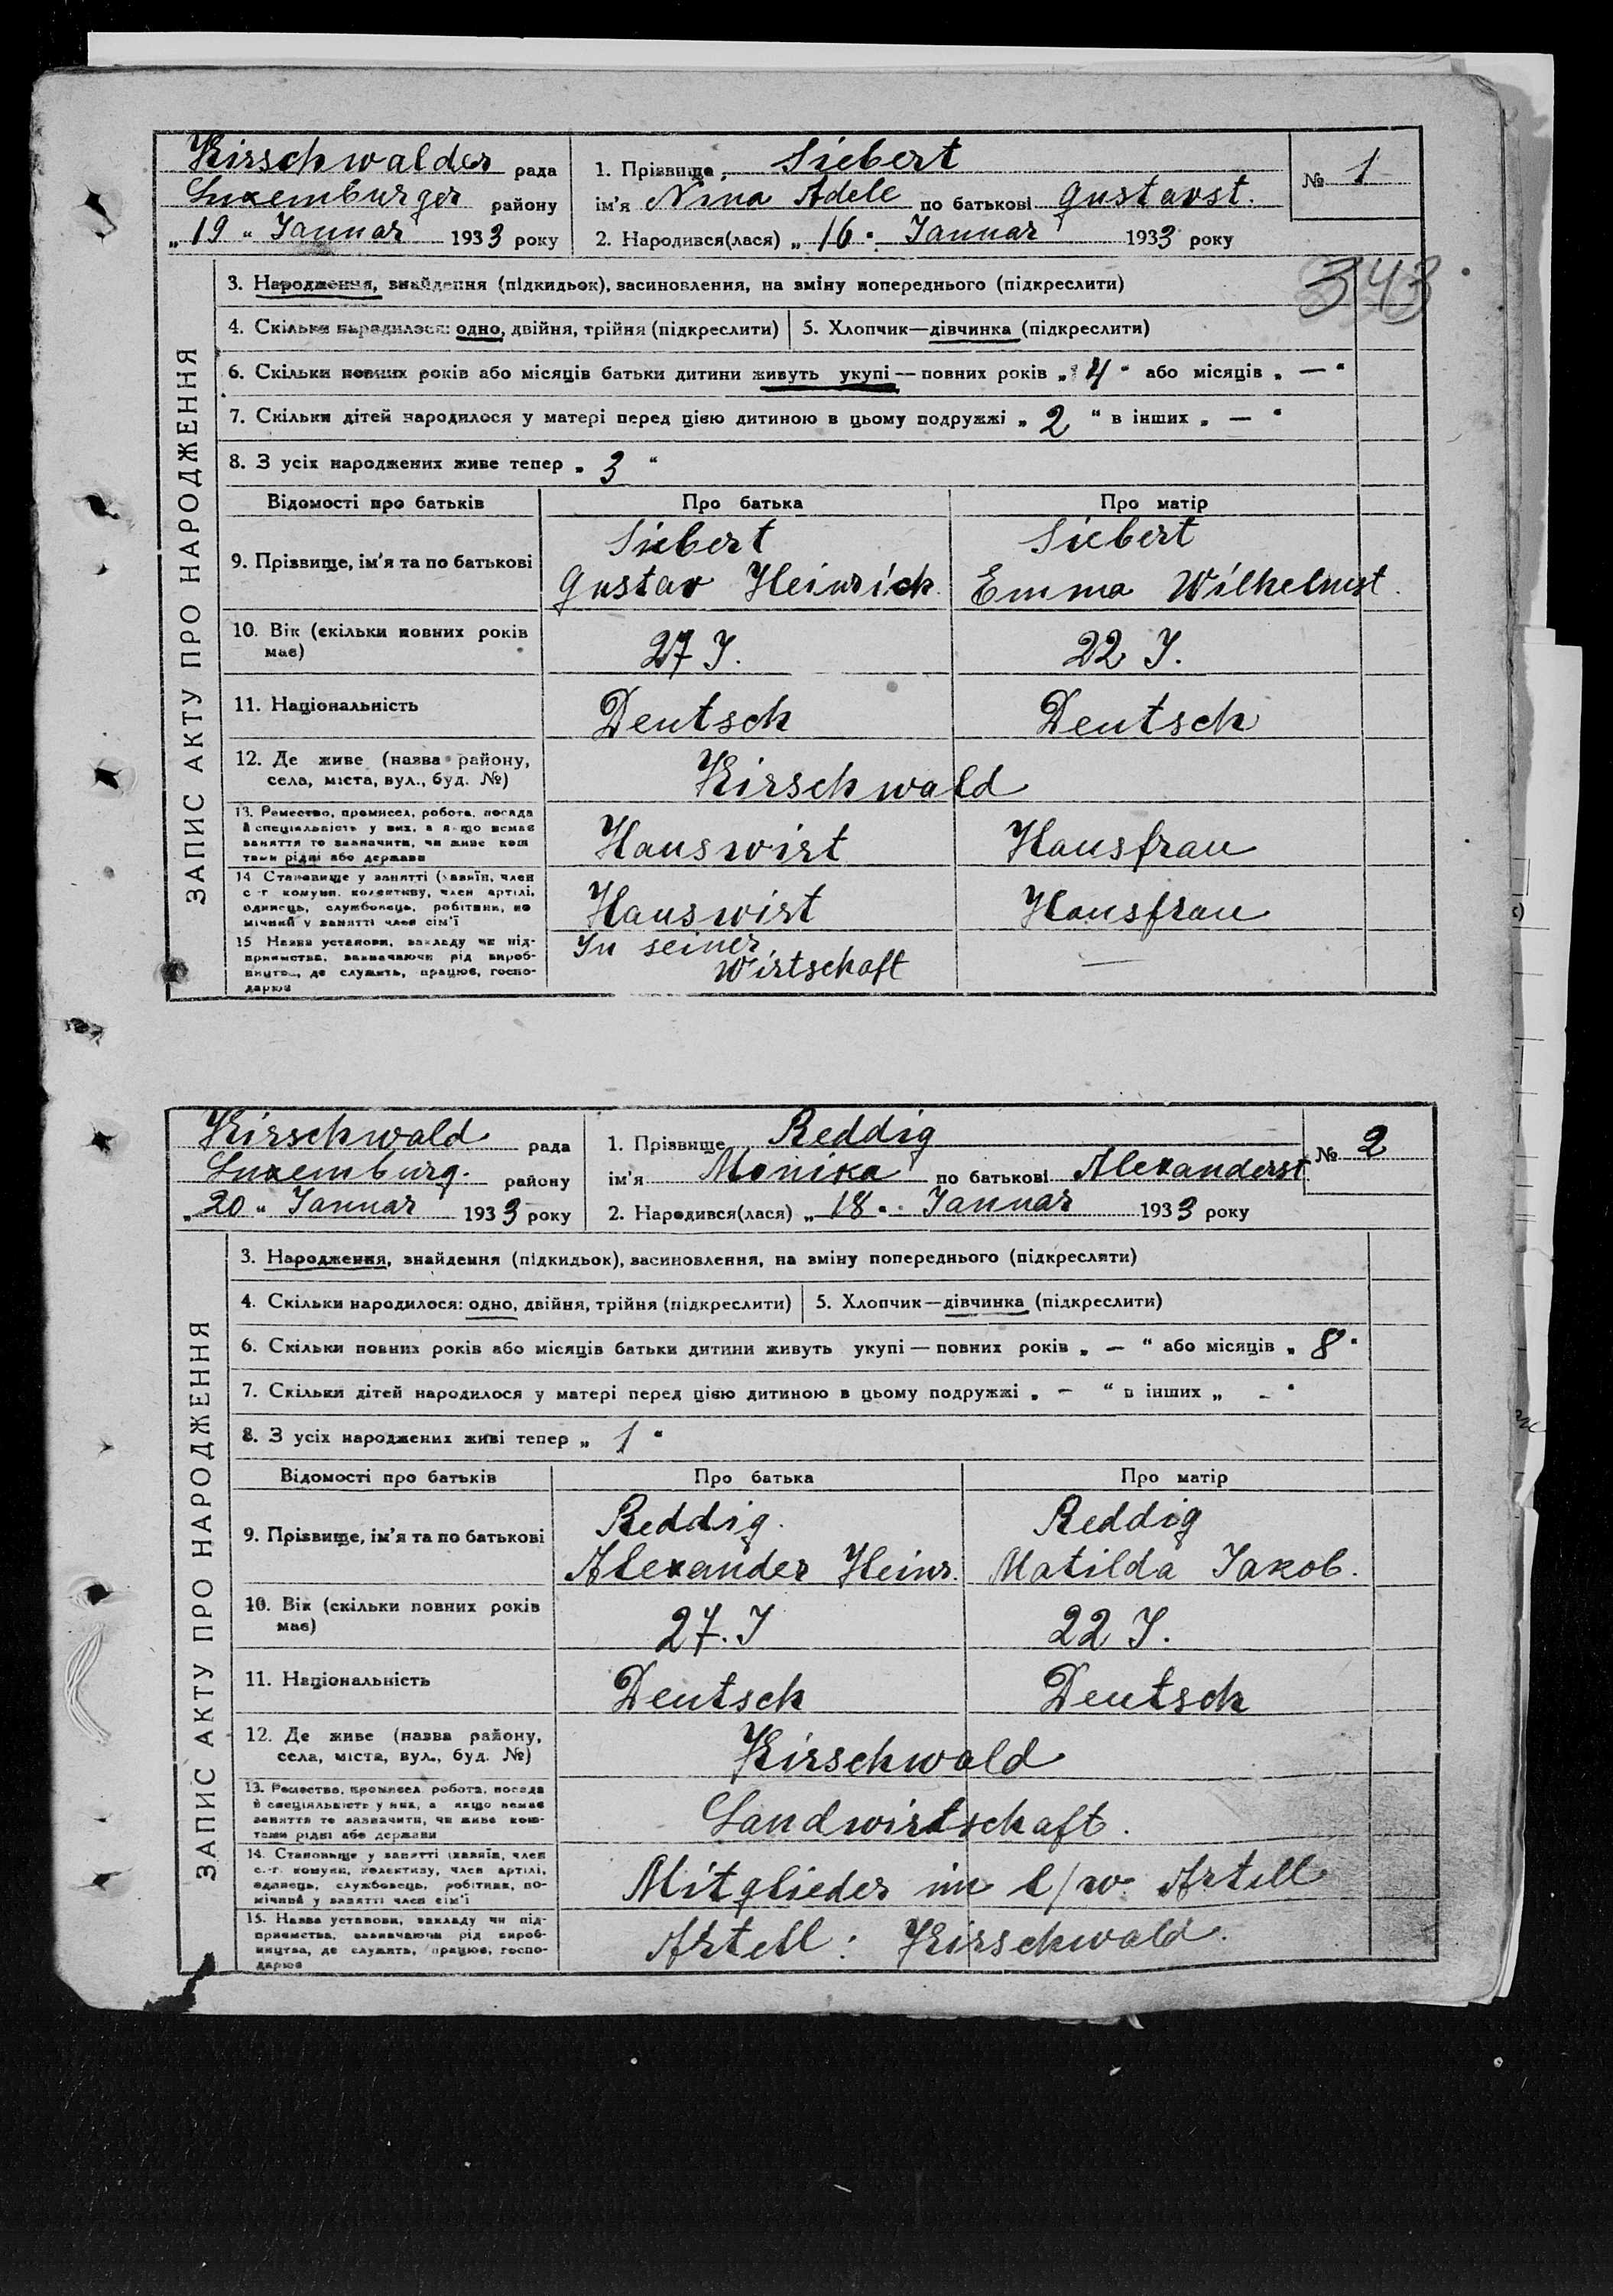 Kirschwalder рада
Luxemburger району
„ 19 “ Januar 1933 року
1. Прізвище Siebert
ім'я Nina Adele по батькові Gustavst.
2. Народився(лася) „ 16 “ Januar 1933 року
№ 1
343
ЗАПИС АКТУ ПРО НАРОДЖЕННЯ
3. Народження, знайдення (підкидьок), васиновлення, на зміну попереднього (підкреслити)
4. Скільки народилося: одно, двійня, трійня (підкреслити) 5. Хлопчик—дівчинка (підкреслити)
6. Скільки повних років або місяців батьки дитини живуть укупі — повних років „ 4 “ або місяців „ — “
7. Скільки дітей народилося у матері перед цією дитиною в цьому подружжі „ 2 “ в інших „ — “
8. З усіх народжених живе тепер „ 3 “
Відомості про батьків Про батька Про матір
9. Прізвище, ім'я та по батькові
Siebert Siebert
Gustav Heinrich. Emma Wilhelmst.
10. Вік (скільки повних років
має)
27 J. 22 J.
11. Національність Deutsch Deutsch
12. Де живе (назва району,
села, міста, вул., буд. №)
Kirschwald
13. Ремество, промисел, робота, посада
й спеціяльність у них, а якщо немає
заняття то зазначити, чи живе кош
тами рідні або держави
Hauswirt Hausfrau
14 Становище у занятті (хазяїн, член
с.-г. комуни, колективу, член артілі,
одинець, службовець, робітник, по
мічний у занятті член сім'ї
Hauswirt Hausfrau
15 Назва установи, закладу чи під-
приємства, зазначаючи рід вироб-
ництва, де служить, працює, госпо-
дарює
In seiner
Wirtschaft —
Kirschwald рада
Luxemburg. району
„ 20 “ Januar 1933 року
1. Прізвище Reddig
ім'я Monika по батькові Alexanderst.
2. Народився(лася) „ 18 “ Januar 1933 року
№ 2
ЗАПИС АКТУ ПРО НАРОДЖЕННЯ
3. Народження, знайдення (підкидьок), васиновлення, на зміну попереднього (підкреслити)
4. Скільки народилося: одно, двійня, трійня (підкреслити) 5. Хлопчик—дівчинка (підкреслити)
6. Скільки повних років або місяців батьки дитини живуть укупі — повних років „ — “ або місяців „ 8 “
7. Скільки дітей народилося у матері перед цією дитиною в цьому подружжі „ — “ в інших „ - “
8. З усіх народжених живі тепер „ 1 “
Відомості про батьків Про батька Про матір
9. Прізвище, ім'я та по батькові
Reddig. Reddig
Alexander Heinr. Matilda Jakob.
10. Вік (скільки повних років
має)
27. J 22 J.
11. Національність Deutsch Deutsch
12. Де живе (назва району,
села, міста, вул., буд. №)
Kirschwald
13. Ремество, промисел, робота, посада
й спеціяльність у них, а якщо немає
заняття то зазначити, чи живе кош-
тами рідні або держави
Landwirtschaft.
14. Становище у занятті (хазяїн, член
с.-г. комуни, колективу, член артілі,
одинець, службовець, робітник, по-
мічний у занятті член сім'ї
Mitglieder im l/w. Artell
15. Назва установи, закладу чи під-
приємства, зазначаючи рід вироб-
ництва, де служить, працює, госпо-
дарює
Artell: Kirschwald.